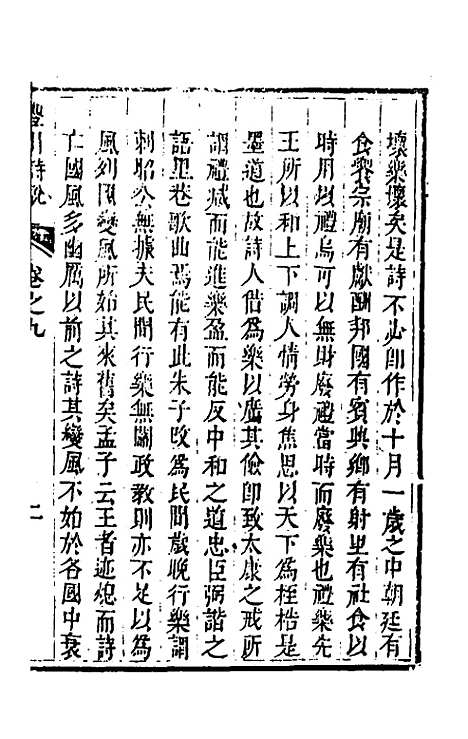 壞樂壞矣是詩不必卽作於十月一歲之中朝廷有
食饗宗廟有獻酬邦國有賓興鄉有射里有社食以
時用以禮烏可以無財廢禮當時而廢樂也禮樂先
王所以和上下調人情勞身焦思以天下為桎梏是
墨道也故詩人借為樂以廣其儉卽致太康之戒所
謂禮減而能進樂盈而能反中和之道忠臣弼諧之
語里巷歌曲焉能有此朱子改為民間歲晚行樂謂
刺昭公無據夫民間行樂無關政教則亦不足以為
風列國變風所始其來舊矣孟子云王者迹熄而詩
亡國風多幽厲以前之詩其變風不始於各國中衰
詩說 卷之九 二